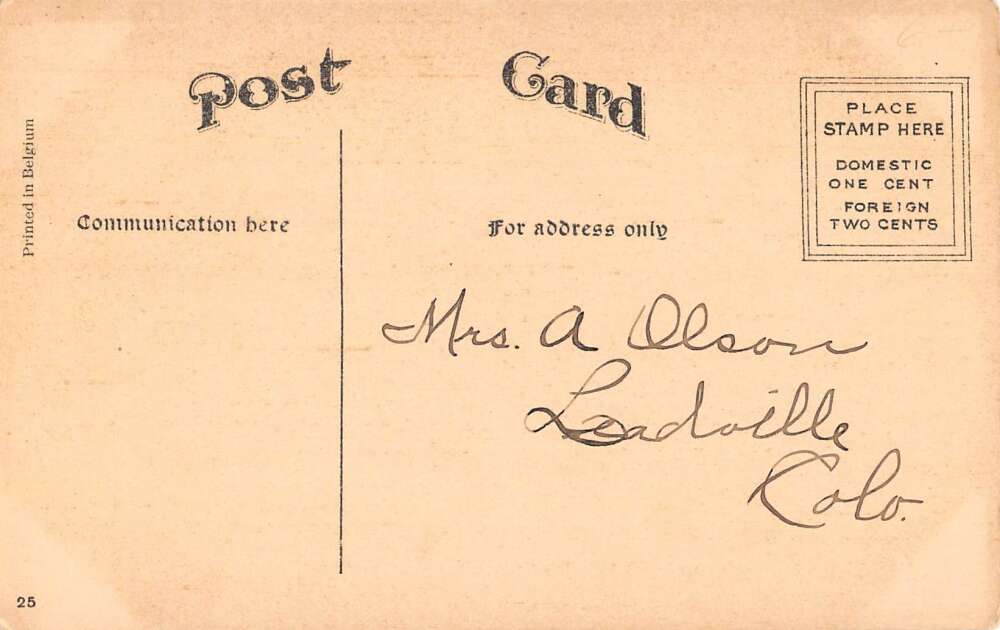 Post Card
PLACE
STAMP HERE
DOMESTIC
ONE CENT
FOREIGN
TWO CENTS
Printed in Belgium
Communication here
For address only
Mrs. A Olson
Leadville
Colo.
25